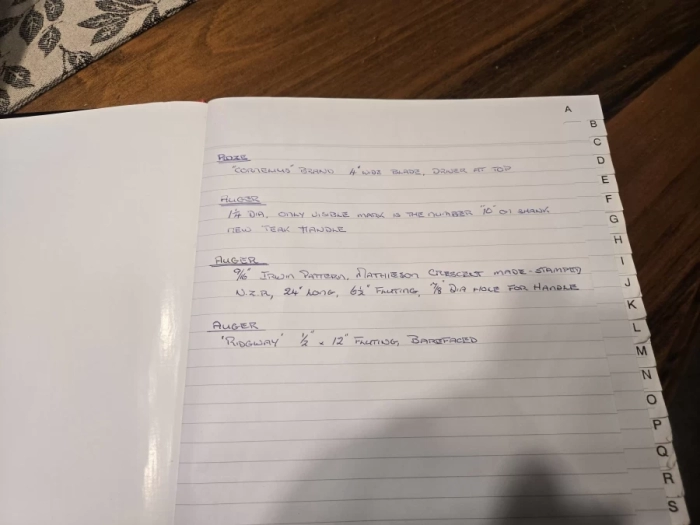 A
B
C
D
E
F
G
H
I
J
K
L
M
N
O
P
Q
R
S
BRAND 4" WIDE BLADE, DRIVER AT TOP
AUGER
DIA, ONLY VISIBLE MARK IS THE NUMBER "10" ON SHANK
NEW TEAK HANDLE
AUGER
9/16" IRWIN PATTERN, MATHIESON CRESCENT MADE - STAMPED
N.Z.R, 24" LONG, 6½" FLUTING, 7/8" DIA HOLE FOR HANDLE
AUGER
'RIDGWAY' ½" x 12" FLUTING, BAREFACED